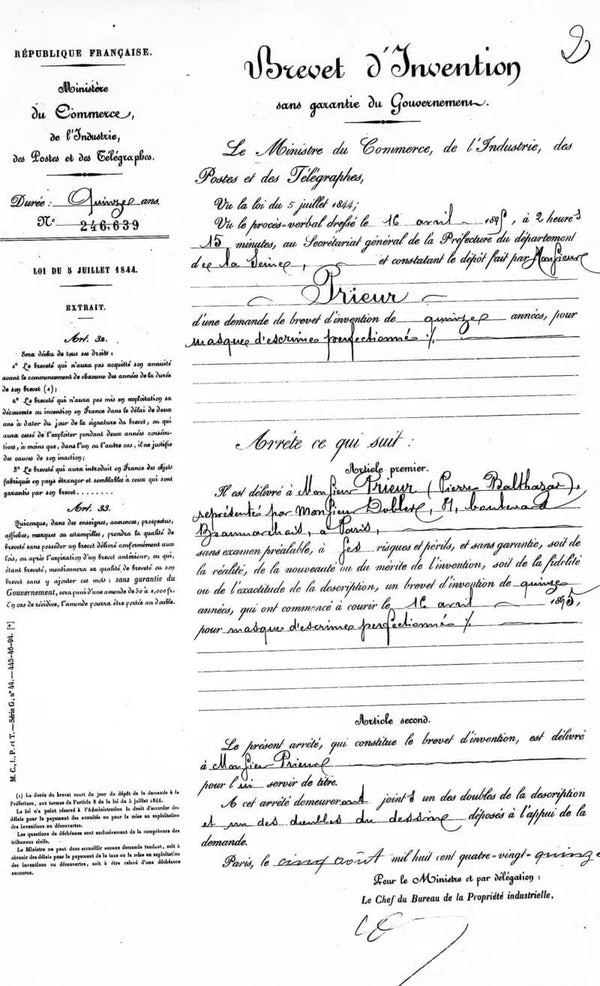 RÉPUBLIQUE FRANÇAISE.
Ministère
du Commerce,
de l'Industrie,
des Postes et des Télégraphes.
Durée : Quinze ans.
N° 246,639
LOI DU 5 JUILLET 1844.
EXTRAIT.
Art. 32.
Sera déchu de tous ses droits :
1° Le breveté qui n'aura pas acquitté son annuité
avant le commencement de chacune des années de la durée
de son brevet (1);
2° Le breveté qui n'aura pas mis en exploitation sa
découverte ou invention en France dans le délai de deux
ans à dater du jour de la signature du brevet, ou qui
aura cessé de l'exploiter pendant deux années consécu-
tives, à moins que, dans l'un ou l'autre cas, il ne justifie
des causes de son inaction;
3° Le breveté qui aura introduit en France des objets
fabriqués en pays étranger et semblables à ceux qui sont
garantis par son brevet.........
Art. 33.
Quiconque, dans des enseignes, annonces, prospectus,
affiches, marques ou estampilles, prendra la qualité de
breveté sans posséder un brevet délivré conformément aux
lois, ou après l'expiration d'un brevet antérieur, ou qui,
étant breveté, mentionnera sa qualité de breveté ou son
brevet sans y ajouter ces mots : sans garantie du
Gouvernement, sera puni d'une amende de 50 à 1,000 fr.
En cas de récidive, l'amende pourra être portée au double.
M. C., I. P. et T. — Série G, n° 40. — 445-46-94. [*]
(1) La durée du brevet court du jour du dépôt de la demande à la
Préfecture, aux termes de l'article 8 de la loi du 5 juillet 1844.
La loi n'a point réservé à l'Administration le droit d'accorder des
délais pour le payement des annuités ou pour la mise en exploitation
des inventions ou découvertes.
Les questions de déchéance sont exclusivement de la compétence des
tribunaux civils.
Le Ministre ne peut donc accueillir aucune demande tendant, soit à
obtenir des délais pour le payement de la taxe ou la mise en exploitation
des inventions ou découvertes, soit à être relevé d'une déchéance
encourue.
2
Brevet d'Invention
sans garantie du Gouvernement.
Le Ministre du Commerce, de l'Industrie, des
Postes et des Télégraphes,
Vu la loi du 5 juillet 1844;
Vu le procès-verbal dressé le 16 avril 1895, à 2 heures
15 minutes, au Secrétariat général de la Préfecture du département
de la Seine, et constatant le dépôt fait par Monsieur
Prieur
d'une demande de brevet d'invention de quinze années, pour
masque d'escrimes perfectionné
Arrête ce qui suit :
Article premier.
Il est délivré à Monsieur Prieur (Pierre Balthazar),
représenté par Monsieur Dobler, boulevard
Beaumarchais, à Paris,
sans examen préalable, à ses risques et périls, et sans garantie, soit de
la réalité, de la nouveauté ou du mérite de l'invention, soit de la fidélité
ou de l'exactitude de la description, un brevet d'invention de quinze
années, qui ont commencé à courir le 16 avril 1895,
pour masque d'escrimes perfectionné
Article second.
Le présent arrêté, qui constitue le brevet d'invention, est délivré
à Monsieur Prieur
pour lui servir de titre.
A cet arrêté demeureront joints un des doubles de la description
et un des doubles du dessin déposés à l'appui de la
demande.
Paris, le cinq août mil huit cent quatre-vingt-quinze
Pour le Ministre et par délégation :
Le Chef du Bureau de la Propriété industrielle,